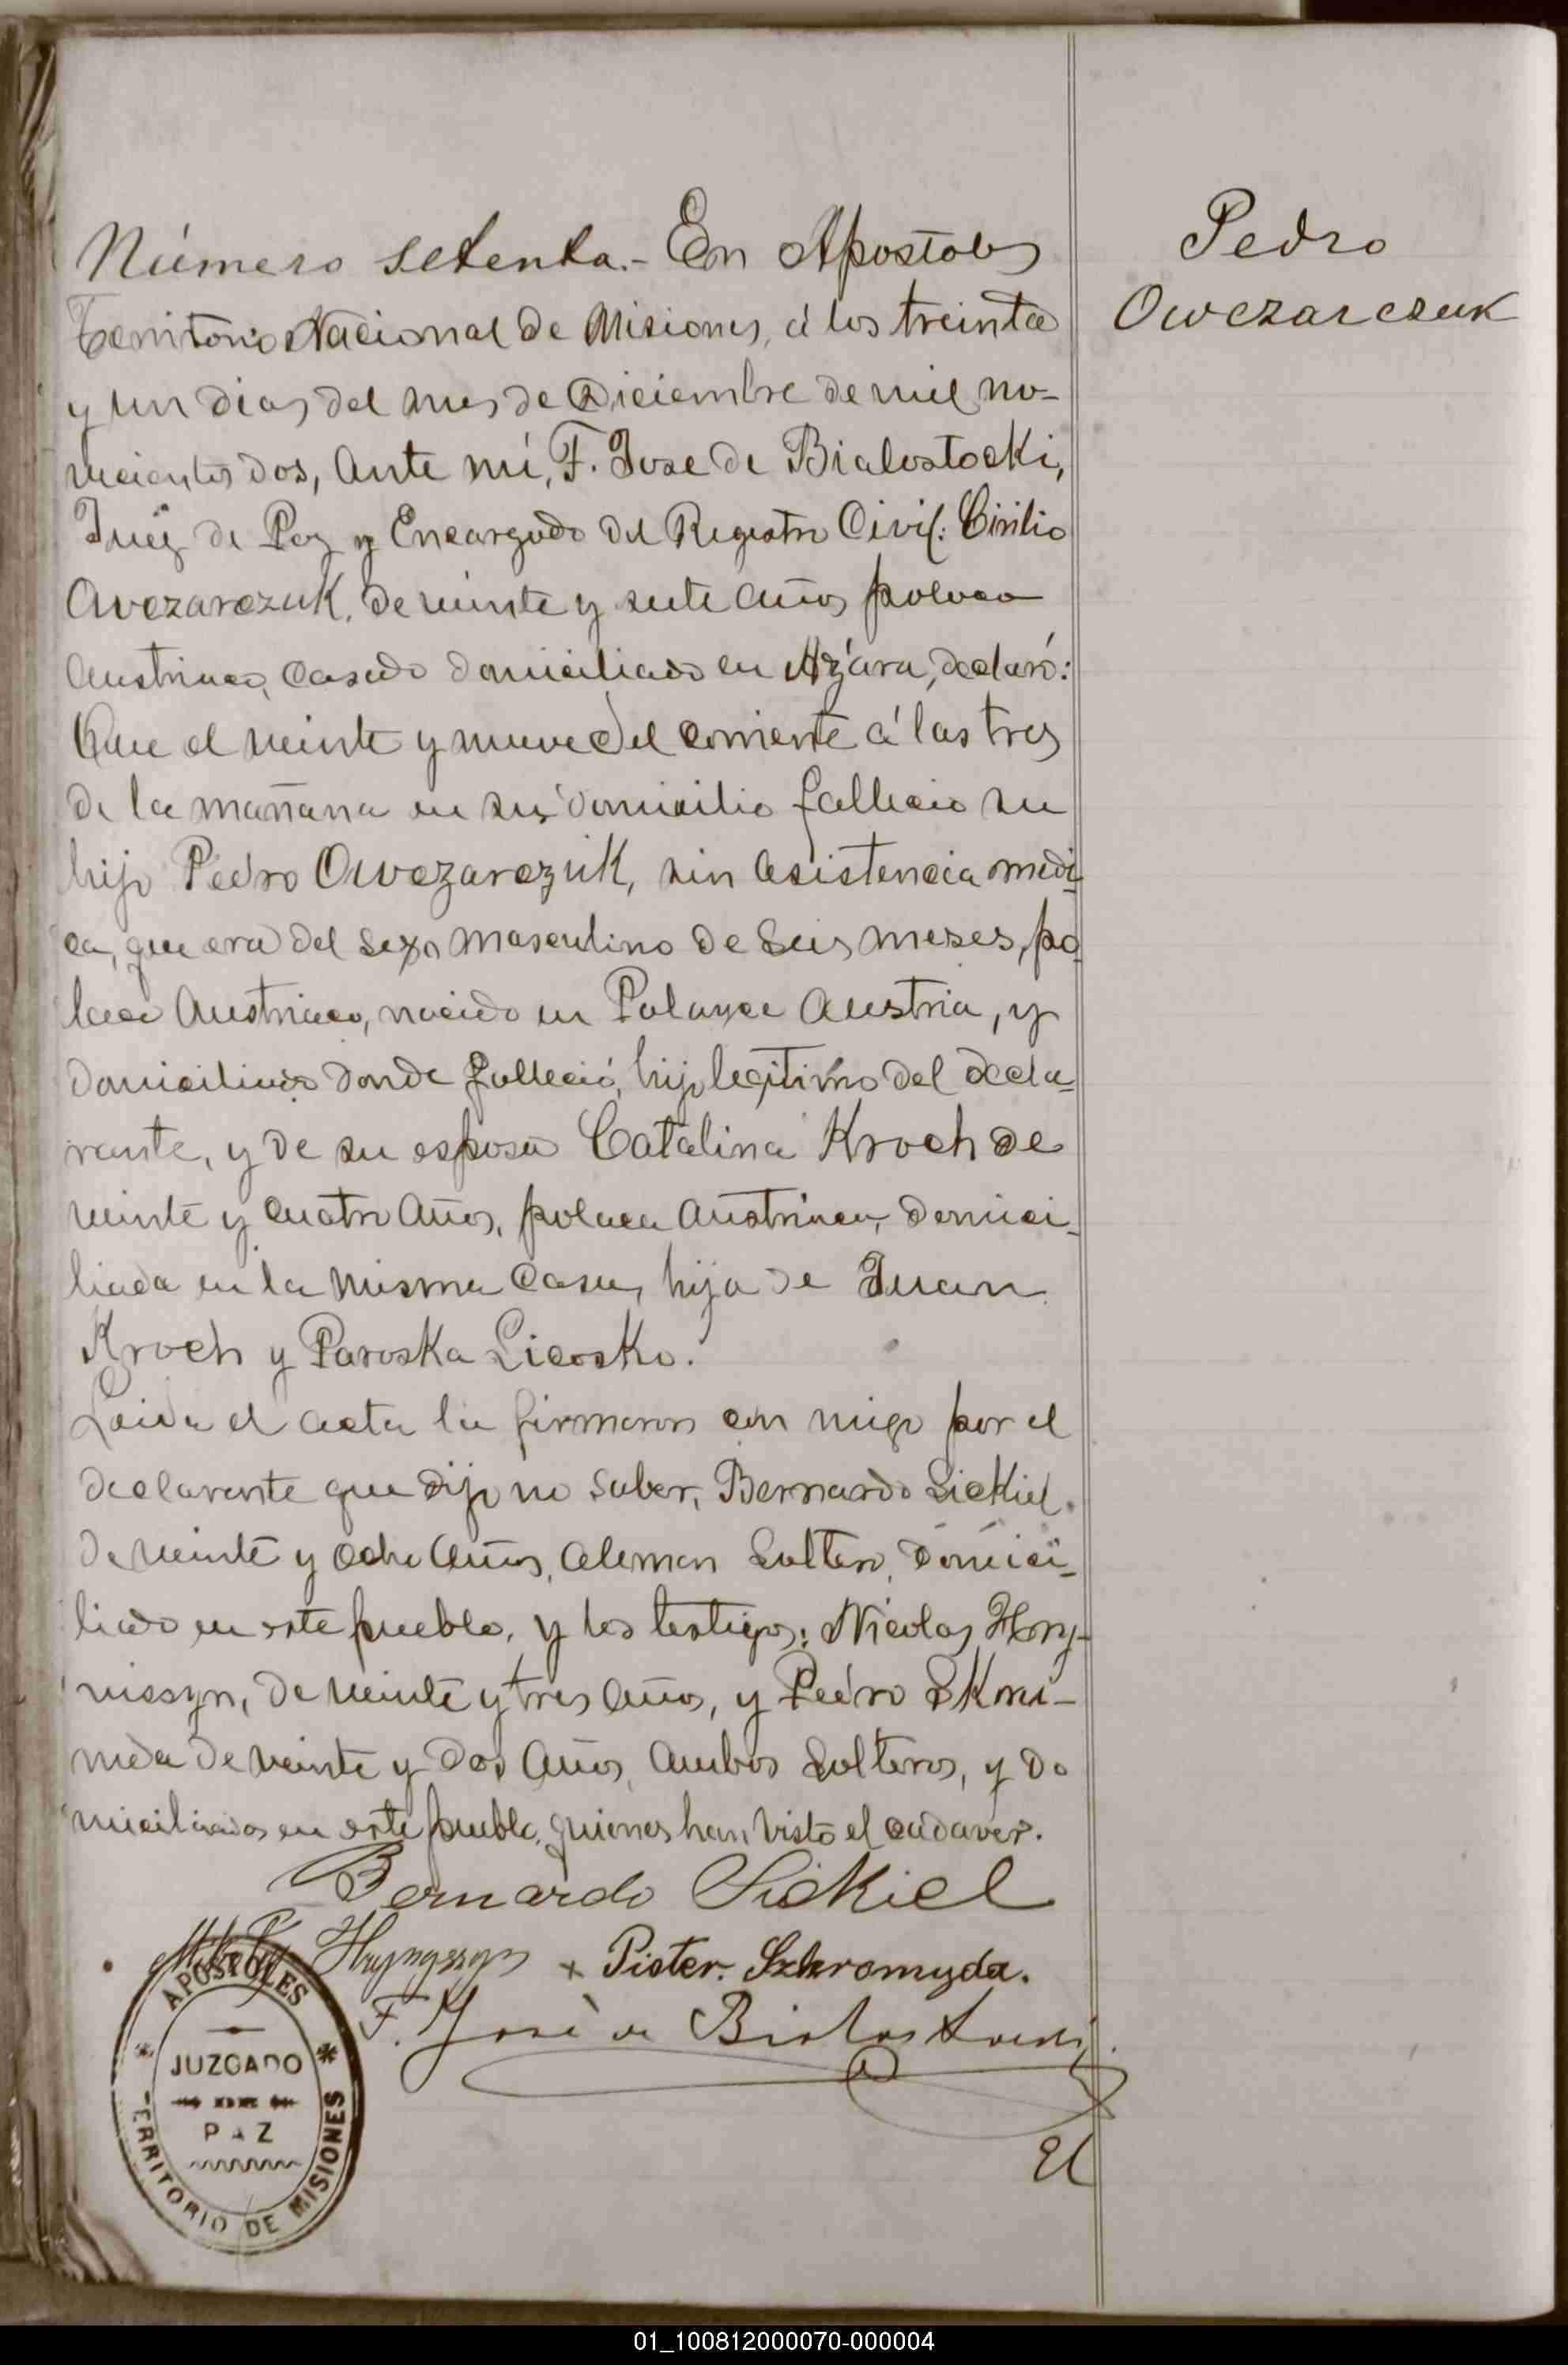 Número setenta.- En Apostoles
Territorio Nacional de Misiones, á los treinta
y un dias del mes de Diciembre de mil no-
vecientos dos, Ante mí, F. Jose de Bialostocki,
Juez de Paz y Encargado del Registro Civil: Cirilio
Owczarczuk, de veinte y siete años polaco
Austriaco, casado domiciliado en Azara, declaró:
Que el veinte y nueve del corriente á las tres
de la mañana en su domicilio fallecio su
hijo Pedro Owczarczuk, sin asistencia medi-
ca, que era del sexo masculino de seis meses, po-
laco Austriaco, nacido en Austria, y
domiciliado donde falleció, hijo legitimo del decla-
rante, y de su esposa Catalina Kroch de
veinte y cuatro años, polaca Austriaca, domici-
liada en la misma casa, hija de Juan
Kroch y Paroska Licosko.
Leida el acta la firmaron con migo por el
declarante que dijo no saber, Bernardo Sickiel.
de veinte y ocho años, aleman soltero, domici-
liado en este pueblo, y los testigos: Nicolas Hry-
nissyn, de veinte y tres años, y Pedro
de veinte y dos años, ambos solteros, y do
miciliados en este pueblo, quienes han visto el cadaver.
Bernardo Sickiel
Hrynyszyn x Pioter. Szkromyda.
F. José de Bialostocki
El
Pedro
Owczarczuk
APOSTOLES
JUZGADO
DE
PAZ
TERRITORIO DE MISIONES
01_100812000070-000004